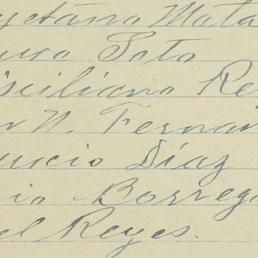 yetano Mata
Soto
isciliano Re
N. Fernan
Díaz
io Borrego
el Reyes.